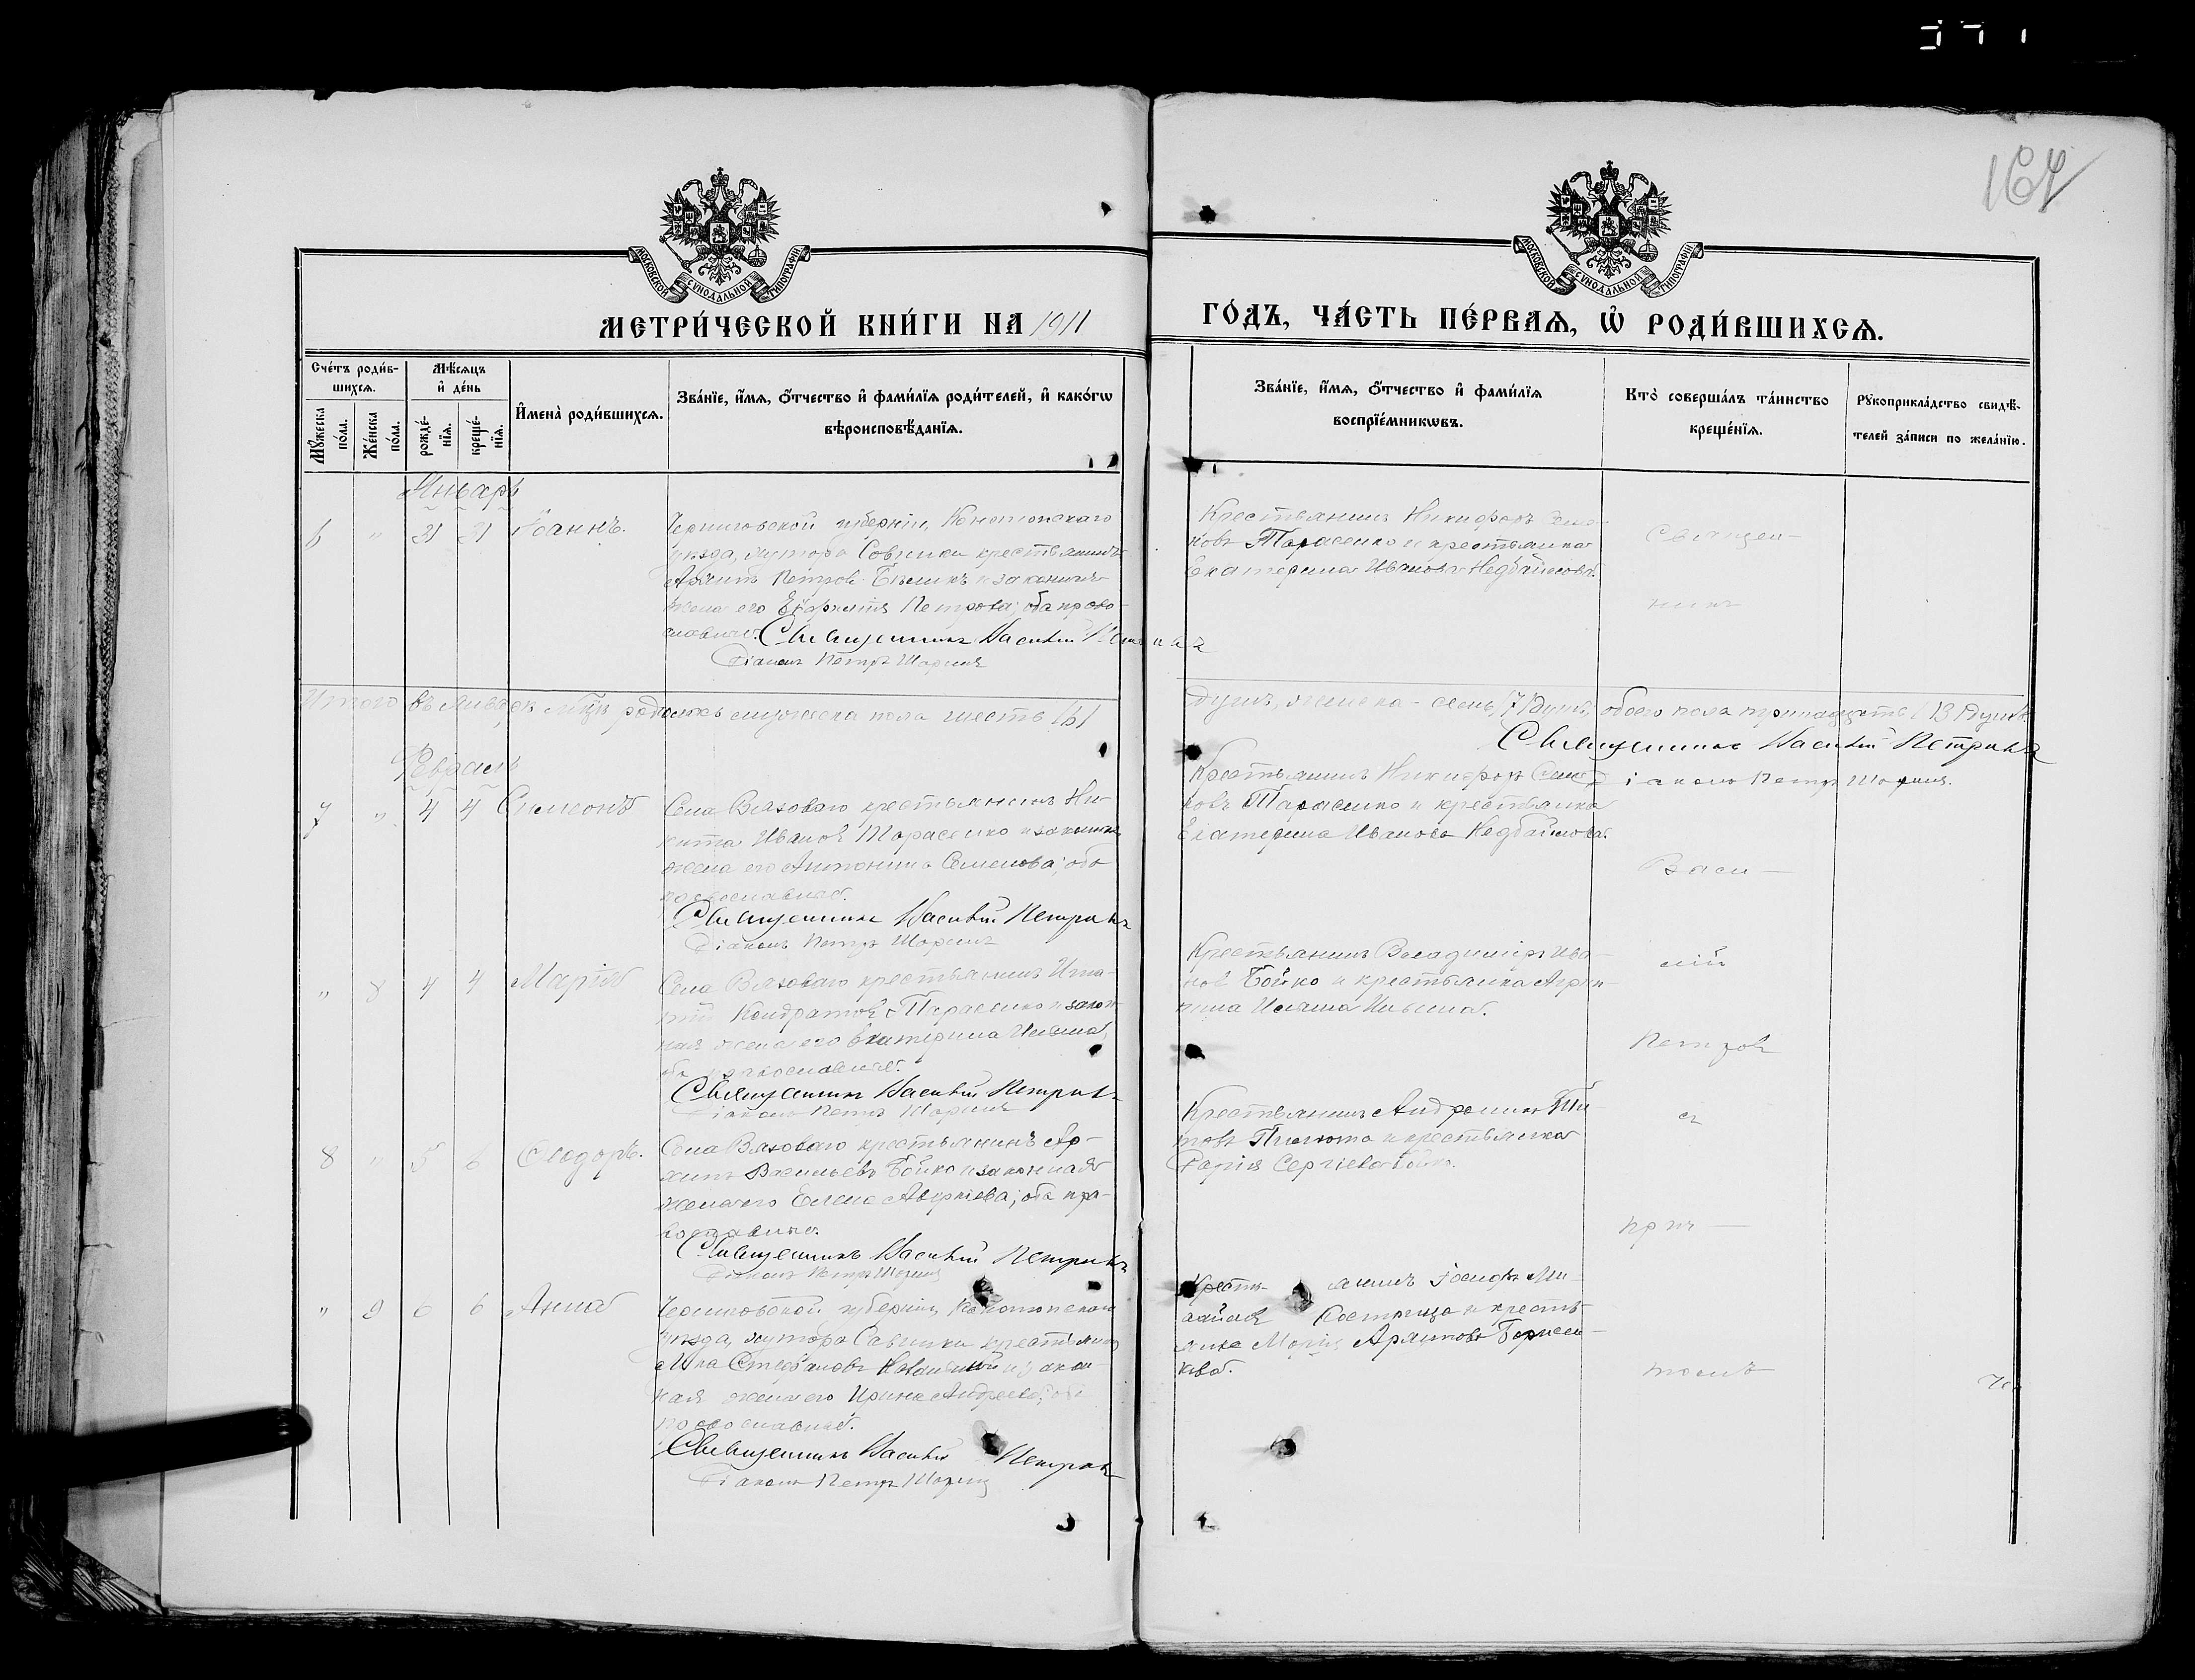 167
МОСКОВСКОЙ СѴНОДАЛЬНОЙ ТИПОГРАФІИ
МОСКОВСКОЙ СѴНОДАЛЬНОЙ ТИПОГРАФІИ
МЕТРИ́ЧЕСКОЙ КНИ́ГИ НА 1911
ГО́ДЪ, ЧА́СТЬ ПЕ́РВАѦ, Ѡ҆ РОДИ́ВШИХСѦ.
Сче́тъ роди́в-
шихсѧ.
Мꙋ́жеска по́ла.
Же́нска по́ла.
Мѣ́сѧцъ
и҆ де́нь
рожде́-
нїѧ.
креще́-
нїѧ.
И҆мена̀ роди́вшихсѧ.
Зва́нїе, и҆́мѧ, ѻ҆́тчество и҆ фами́лїѧ роди́телей, и҆ како́гѡ
вѣроисповѣ́данїѧ.
Зва́нїе, и҆́мѧ, ѻ҆́тчество и҆ фами́лїѧ
воспрїе́мникѡвъ.
Кто̀ соверша́лъ та́инство
креще́нїѧ.
Рꙋкоприкла́дство свидѣ́-
телей за́писи по жела́нїю.
Январь
6 " 31 31 Іоаннъ.
Черниговской губерніи, Конотопскаго
уѣзда, хутора Савинки крестьянинъ
Петровъ и законная
жена его Петрова; оба право-
славные. Священникъ Василій Петринъ
Діаконъ Петръ
Крестьянинъ Никифоръ Семе-
новъ Тарасенко и крестьянка
Екатерина Иванова Недбайлова.
Священ-
никъ
Итого въ Январѣ м-цѣ родилось мужеска пола шесть /6/
душъ, женска - семь /7/ душъ, обоего пола тринадцать /13/ душъ.
Священникъ Василій Петринъ
Діаконъ Петръ
Февраль
7 " 4 4 Симеонъ
Села Вязоваго крестьянинъ Ни-
кита Ивановъ Тарасенко и законная
жена его Антонина Семенова; оба
православные.
Священникъ Василій Петринъ
Діаконъ Петръ
Крестьянинъ Никифоръ Семе-
новъ Тарасенко и крестьянка
Екатерина Иванова Недбайлова.
Васи-
" 8 4 4 Марія
Села Вязоваго крестьянинъ Игна-
тій Кондратовъ Тарасенко и закон-
ная жена его Екатерина Ильина,
оба православные.
Священникъ Василій Петринъ
Діаконъ Петръ
Крестьянинъ Владимиръ Ива-
новъ Бойко и крестьянка Агрип-
пина Ильина
лій
Петров
8 " 5 6 Ѳеодоръ.
Села Вязоваго крестьянинъ Ар-
хипъ Васильевъ Бойко и законная
жена его Елена оба пра-
вославные.
Священникъ Василій Петринъ
Діаконъ Петръ
Крестьянинъ Андроникъ Ти-
товъ и крестьянка
Марія Сергіева Бойко.
съ
прич-
" 9 6 6 Анна
Черниговской губерніи, Конотопскаго
уѣзда, хутора Савинки крестьянинъ
Илья Стефановъ и закон-
ная жена его Ирина Андреева; оба
православные.
Священникъ Василій Петринъ
Діаконъ Петръ
Крестьянинъ Іосифъ Ми-
и кресть-
янка Марія
томъ